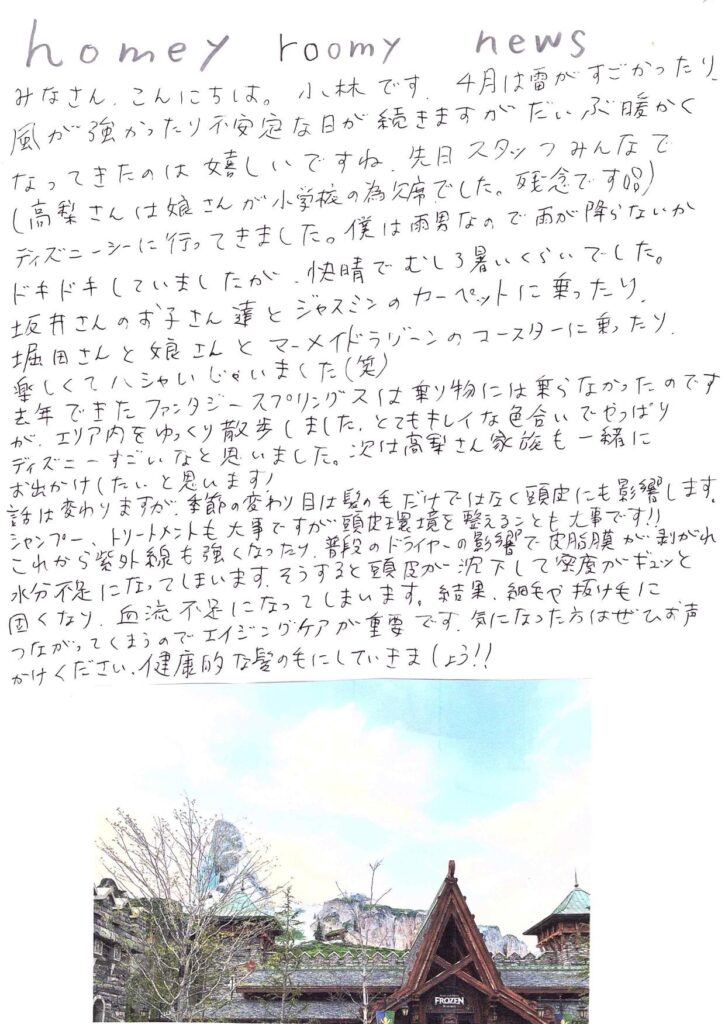 homey roomy news
みなさん、こんにちは。小林です。4月は雷がすごかったり、
風が強かったり不安定な日が続きますがだいぶ暖かく
なってきたのは嬉しいですね。先日スタッフみんなで
(高梨さんは娘さんが小学校の為欠席でした。残念です)
ディズニーシーに行ってきました。僕は雨男なので雨が降らないか
ドキドキしていましたが、快晴でむしろ暑いくらいでした。
坂井さんのお子さん達とジャスミンのカーペットに乗ったり、
堀田さんと娘さんとマーメイドラグーンのコースターに乗ったり、
楽しくてハシャいじゃいました(笑)
去年できたファンタジースプリングスは乗り物には乗らなかったのです
が、エリア内をゆっくり散歩しました、とてもキレイな色合いでやっぱり
ディズニーすごいなと思いました。次は高梨さん家族も一緒に
お出かけしたいと思います!
話は変わりますが、季節の変わり目は髪の毛だけではなく頭皮にも影響します。
シャンプー、トリートメントも大事ですが頭皮環境を整えることも大事です!!
これから紫外線も強くなったり、普段のドライヤーの影響で皮脂膜が剥がれ
水分不足になってしまいます。そうすると頭皮が沈下して密度がギュッと
固くなり、血流不足になってしまいます。結果、細毛や抜け毛に
つながってしまうのでエイジングケアが重要です。気になった方はぜひお声
かけください、健康的な髪の毛にしていきましょう!!
FROZEN